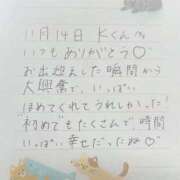 11月14日 Kくんへ
いつもありがとう♡
お出迎えした瞬間から
大興奮で、いっぱい
ほめてくれてうれしかった!
"初めて"もたくさんで、時間
いっぱい幸せだったね♡